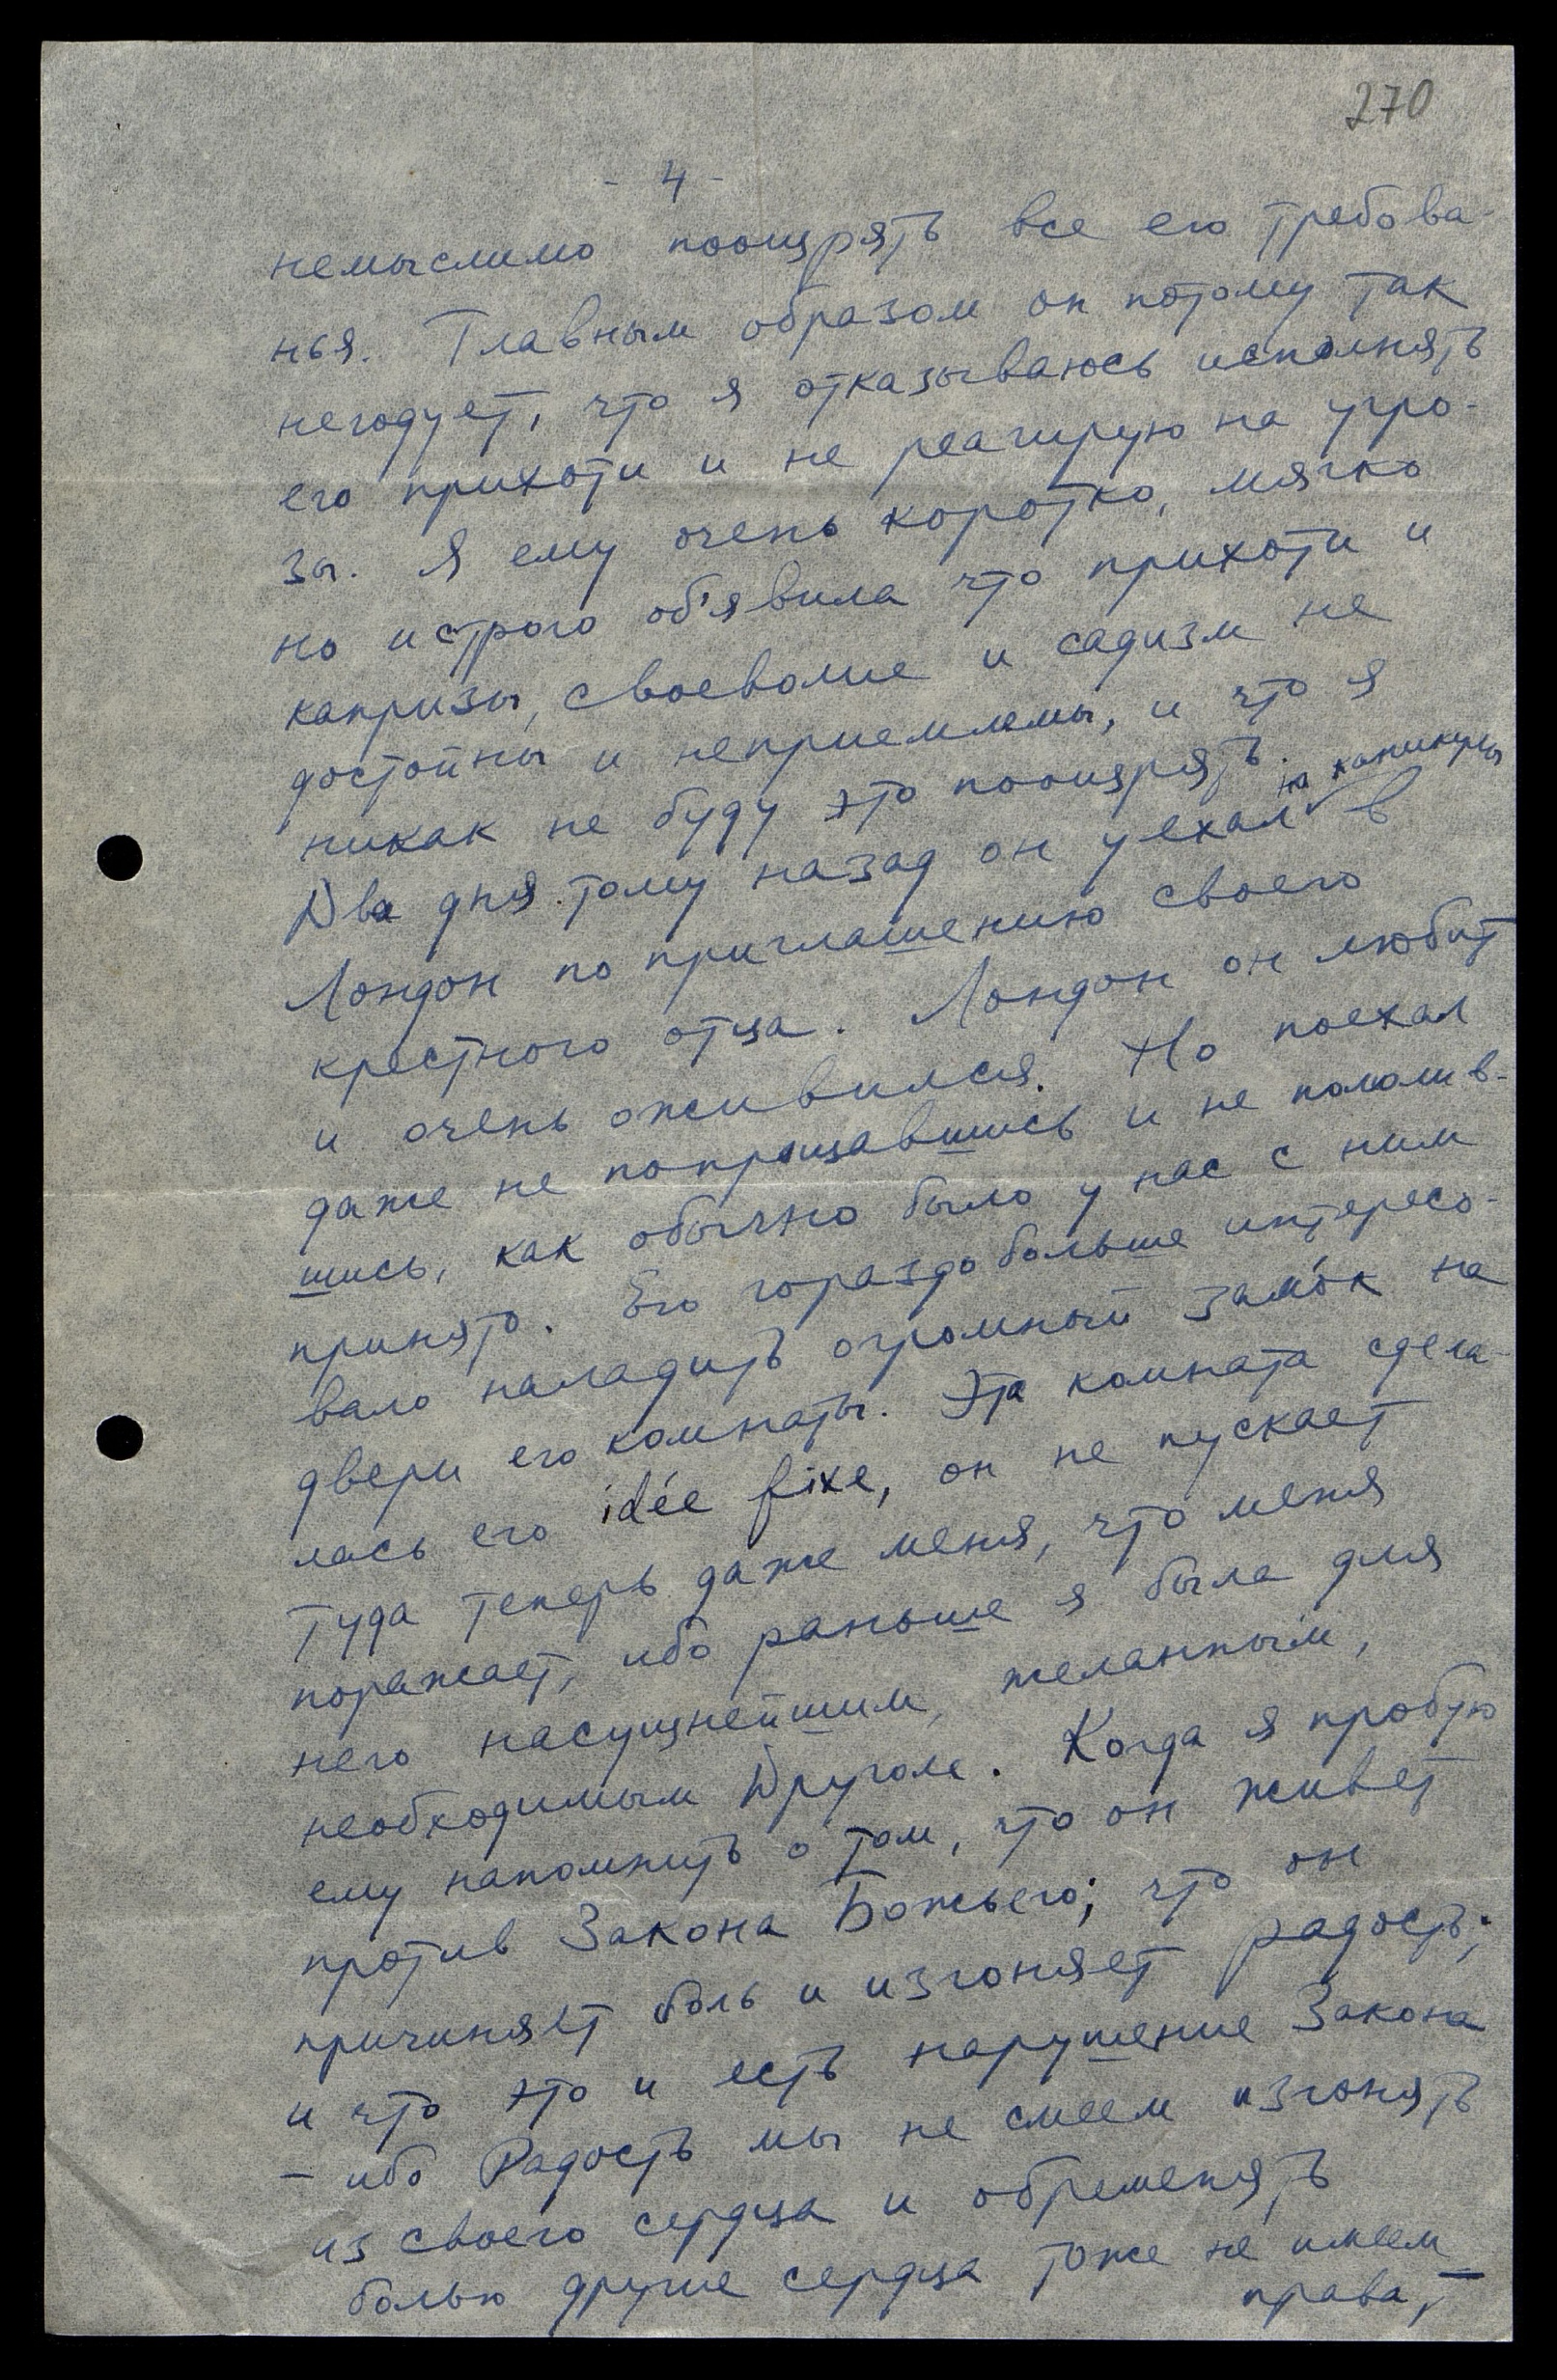 270
- 4 -
немыслимо поощрять все его требова-
нья. Главным образом он потому так
негодует, что я отказываюсь исполнять
его прихоти и не реагирую на угро-
зы. Я ему очень коротко, мягко
но и строго об'явила что прихоти и
капризы, своеволие и садизм не
достойны и неприемлемы, и что я
никак не буду это поощрять.
на каникулы
Два дня тому назад он уехал в
Лондон по приглашению своего
крестного отца. Лондон он любит
и очень оживился. Но поехал
даже не попрощавшись и не помолив-
шись, как обычно было у нас с ним
принято. Его гораздо больше интересо-
вало наладить огромный замо́к на
двери его комнаты. Эта комната сдела-
лась его idée fixe, он не пускает
туда теперь даже меня, что меня
поражает, ибо раньше я была для
него насущнейшим, желанным,
необходимым Другом. Когда я пробую
ему напомнить о том, что он живет
против Закона Божьего; что он
причиняет боль и изгоняет радость;
и что это и есть нарушение Закона
- ибо Радость мы не смеем изгонять
из своего сердца и обременять
болью другие сердца тоже не имеем
права, -